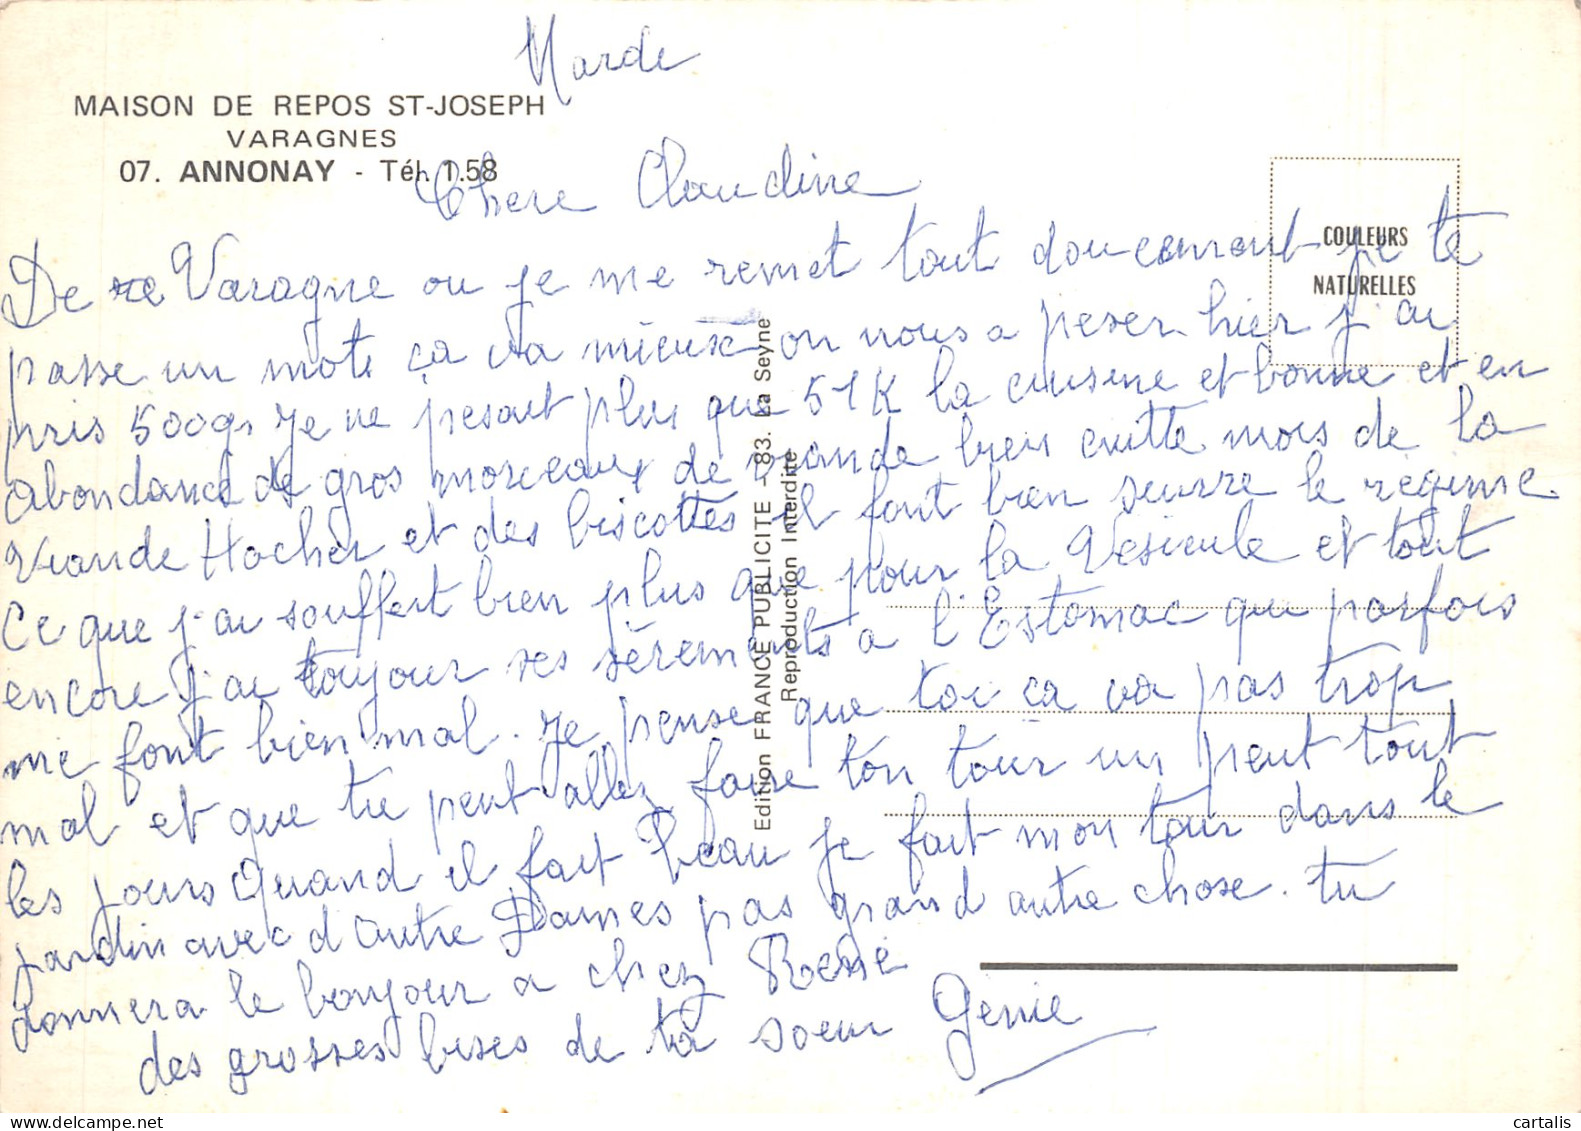 Marde
MAISON DE REPOS ST-JOSEPH
VARAGNES
07. ANNONAY - Tél. 1.58
Chere Claudine
COULEURS
NATURELLES
De Varagne ou je me remet tout doucement je te
passe un mote ça va mieuse on nous a peser hier j'ai
pris 500gr je ne pesait plus que 51K la cuisine et bonne et en
abondance de gros morceaux de viande bien cuitte mois de la
viande Hocher et des biscottes il font bien suivre le regime
Ce que j'ai souffert bien plus que pour la Vesicule et tout
encore j'ai toujour ses sèrements a l'Estomac qui parfois
me font bien mal. Je pense que toi ça va pas trop
mal et que tu peut allez faire ton tour un peut tout
les jours Quand il fait beau je fait mon tour dans le
jardin avec d'autre Dames pas grand autre chose. tu
donnera le bonjour a chez René
des grosses bises de ta soeur Genie
Edition FRANCE PUBLICITE - 83. La Seyne
Reproduction Interdite
cartalis